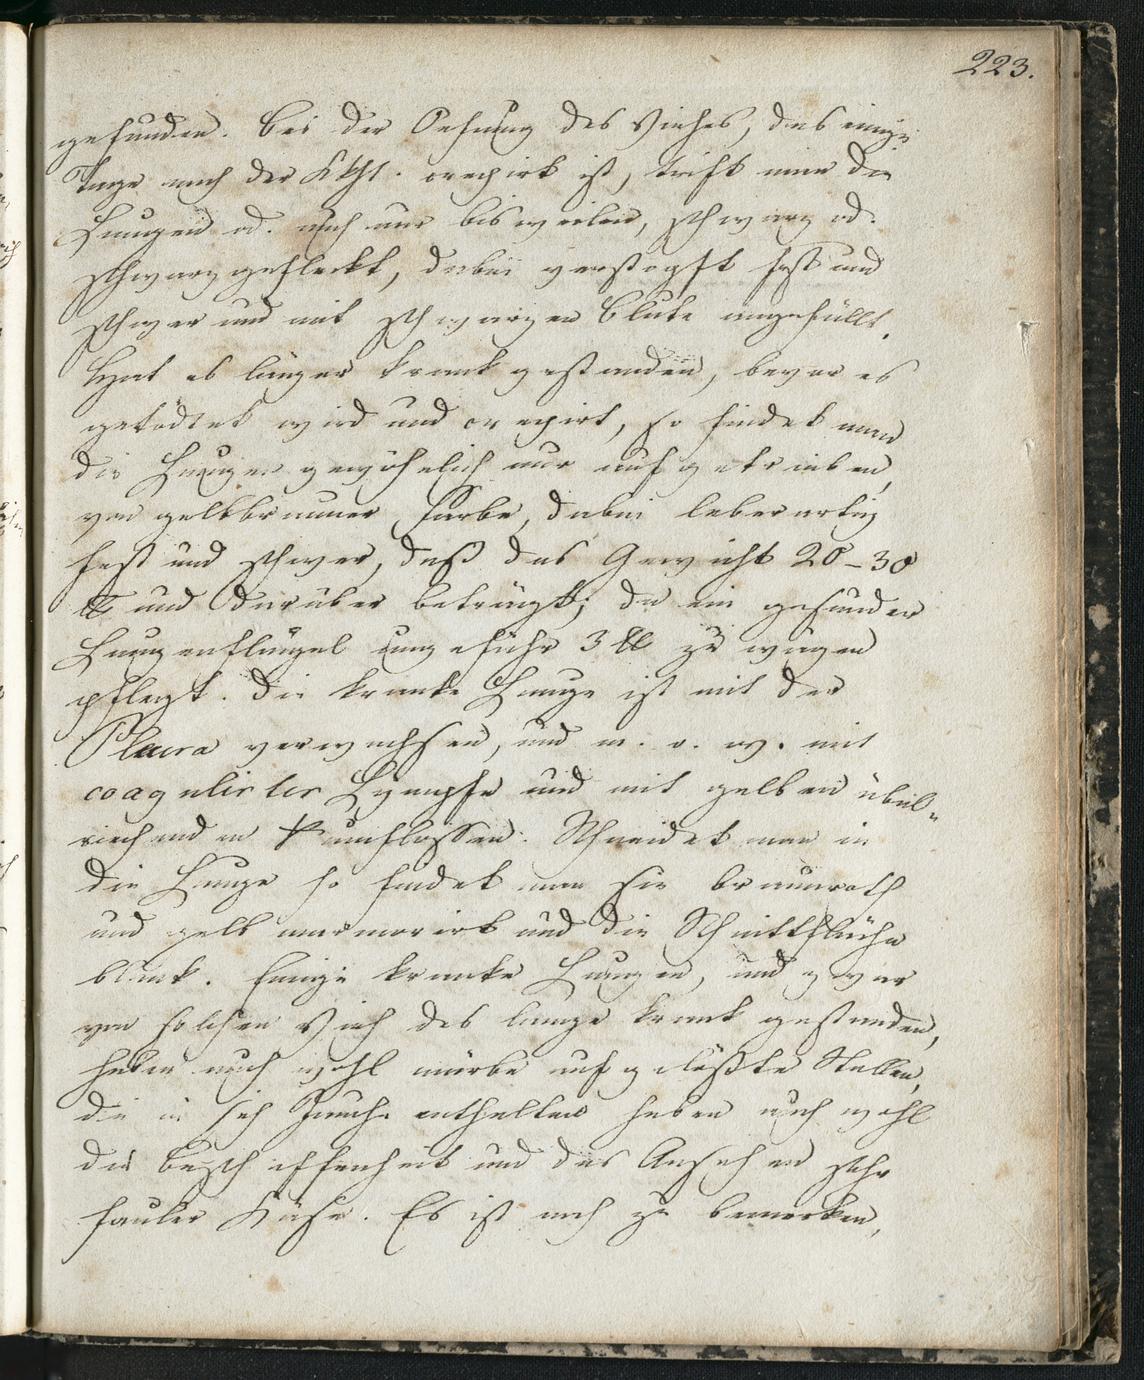 223.
gefunden. Bei der Oefnung des Viehes, das einige
Tage nach der Kkht. crepirt ist, trift man die
Lungen od. auch nur bisweilen, schwarz od.
schwarzgefleckt, dabei verstopft fest und
schwer und mit schwarzen Blute angefüllt.
Hat es länger krank gestanden, bevor es
getödtet wird und crepirt, so findet man
die Lungen gewöhnlich nur aufgetrieben,
von gelbbrauner Farbe, dabei leberartig
fest und schwer, daß das Gewicht 20-30
℔ und darüber beträgt; da ein gesunder
Lungenflügel ungefähr 3 ℔ zu wägen
pflegt. Die kranke Lunge ist mit der
Pleura verwachsen, und m. o. w. mit
coagulirter Lympfe und mit gelben übel-
riechenden umflossen. Schneidet man in
die Lunge so findet man sie braunroth
und gelb marmorirt und die Schnittfläche
blank. Einige kranke Lungen, und zwar
von solchen Vieh des lange krank gestanden,
haben auch wohl mürbe aufgelößte Stellen,
die in sich Jauche enthalten haben auch wohl
die Beschaffenheit und das Ansehen sehr
fauler Käse. Es ist noch zu bemerken,